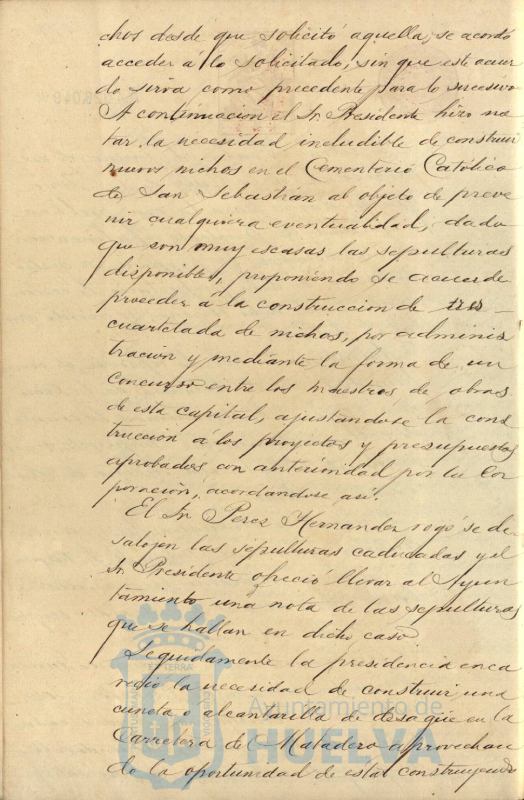 chos desde que solicitó aquella, se acordó
acceder á lo solicitado, sin que este acuer
do sirva como precedente para lo sucesivo
A continuacion el Sr. Presidente hizo no
tar la necesidad includible de construir
nuevos nichos en el Cementerio Católico
de San Sebastián al objeto de preve
nir cualquiera eventualidad, dado
que son muy escasas las sepulturas
disponibles, proponiendo se acuerde
proceder á la construccion de tres
cuartelada de nichos, por adminis
tración y mediante la forma de un
concurso entre los maestros de obras
de esta capital, ajustandose la cons
trucción á los proyectos y presupuestos
aprobados con anterioridad por la Cor
poración, acordandose así.
El Sr. Perez Hernandez rogó se de
salojen las sepulturas caducadas y el
Sr. Presidente ofreció llevar al Ayun
tamiento una nota de las sepulturas
que se hallan en dicho caso
Seguidamente la presidencia enca
reció la necesidad de construir una
cuneta o alcantarilla de desagüe en la
Carretera del Matadero aprovechan
do la oportunidad de estar construyendo
Ayuntamiento de
HUELVA